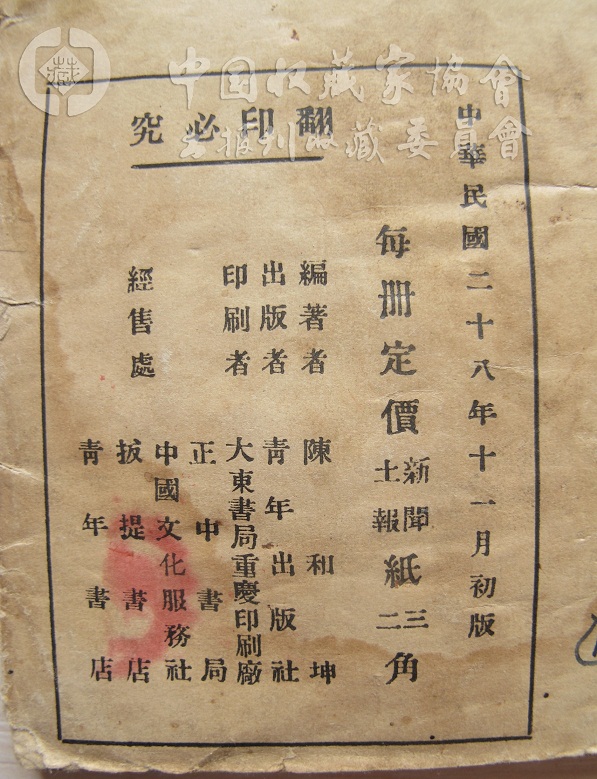 中国收藏家協會
書報刊收藏委員會
藏
中華民國二十八年十一月初版
每册定價新聞紙三角
土報紙二角
翻印必究
編著者 陳和坤
出版者 青年出版社
印刷者 大東書局重慶印刷廠
經售處 正中書局
中國文化服務社
拔提書店
青年書店